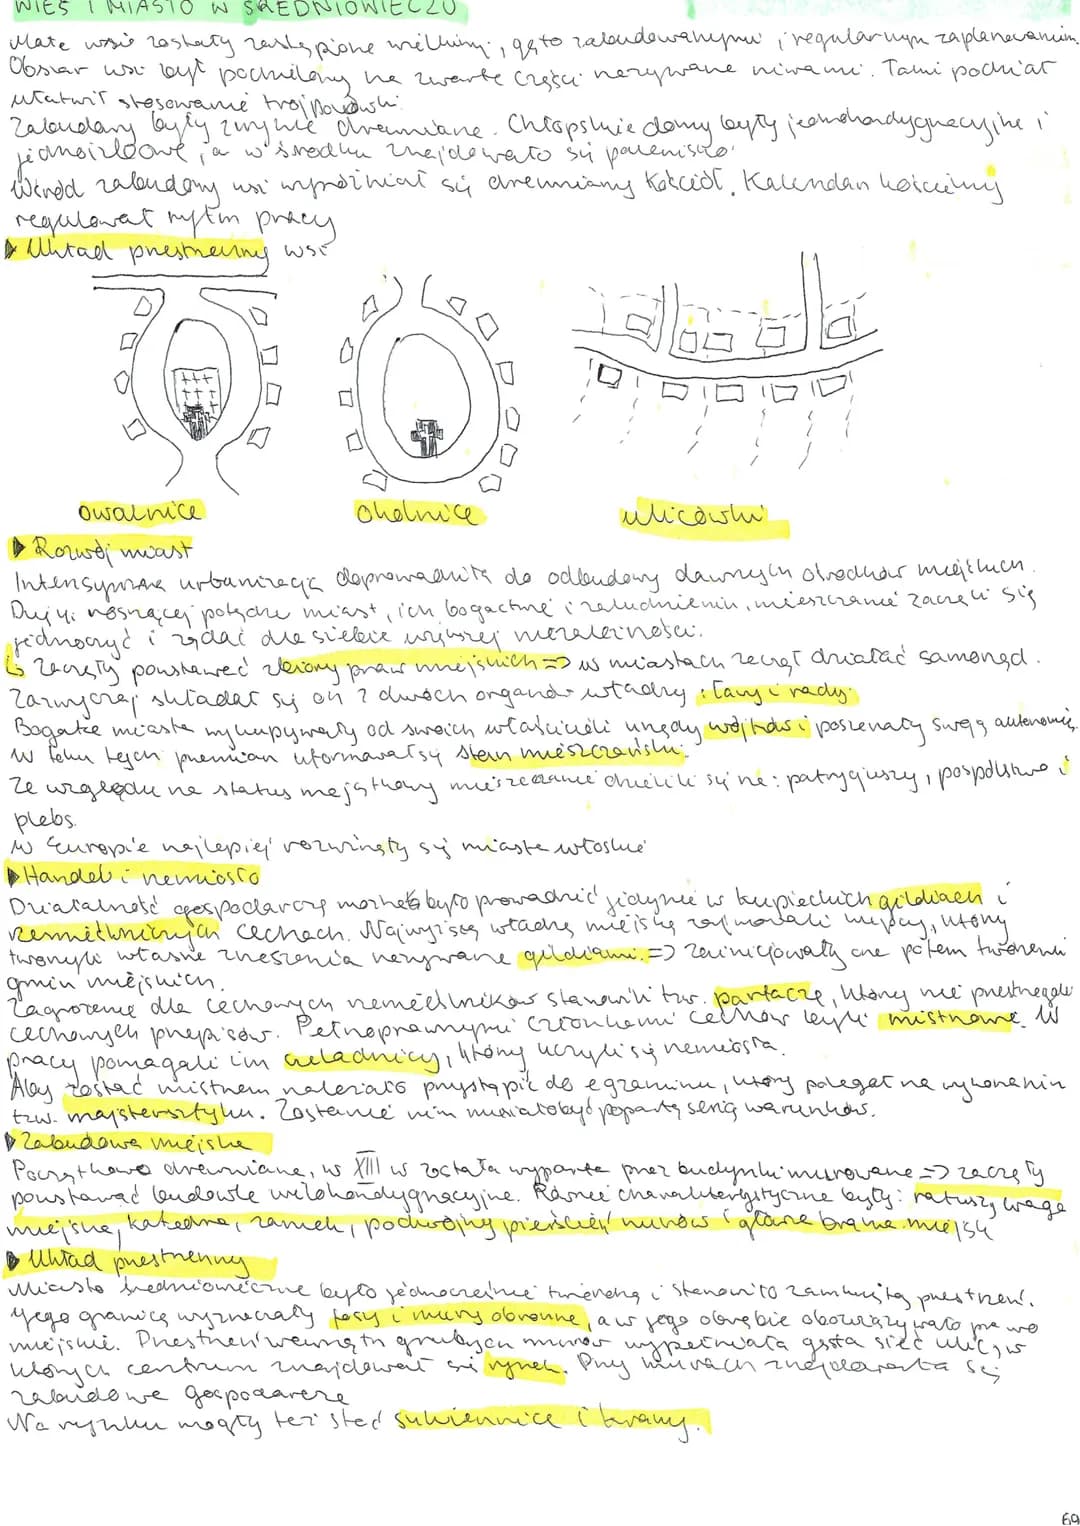 WIEŚ I MIASTO W ŚREDNIOWIECZU
Małe wsie zostały zastąpione wielkimi, gęsto zabudowanymi i regularnym zaplanowaniem.
Obszar wsi był podzielony na zwarte części nazywane niwami. Taki podział
ułatwił stosowanie trójpolówki.
Zabudowy były zwykle drewniane. Chłopskie domy były jednokondygnacyjne i
jednoizbowe, a w środku znajdowało się palenisko.
Wśród zabudowy wsi wyróżniał się drewniany kościół. Kalendarz kościelny
regulował rytm pracy
Układ przestrzenny wsi
owalnice okolnice ulicówki
Rozwój miast
Intensywna urbanizacja doprowadziła do odbudowy dawnych ośrodków miejskich.
Dzięki rosnącej potędze miast, ich bogactwie i zaludnieniu, mieszczanie zaczęli się
jednoczyć i żądać dla siebie większej niezależności.
↳ zaczęły powstawać zbiory praw miejskich => w miastach zaczął działać samorząd.
Zazwyczaj składał się on z dwóch organów władzy: ławy i rady.
Bogate miasta wykupywały od swoich właścicieli urzędy wójtów i poszerzały swoją autonomię.
W toku tych przemian uformował się stan mieszczański.
Ze względu na status majątkowy mieszczanie dzielili się na: patrycjuszy, pospólstwo i
plebs.
W Europie najlepiej rozwinęły się miasta włoskie
Handel i rzemiosło
Działalność gospodarczą można było prowadzić jedynie w kupieckich gildiach i
rzemieślniczych cechach. Najwyższą władzę miejską zajmowali kupcy, którzy
tworzyli własne zrzeszenia nazywane gildiami. => zainicjowały one potem tworzenie
gmin miejskich.
Zagrożenie dla cechowych rzemieślników stanowili tzw. partacze, którzy nie przestrzegali
cechowych przepisów. Pełnoprawnymi członkami cechów byli mistrzowie. W
pracy pomagali im czeladnicy, którzy uczyli się rzemiosła.
Aby zostać mistrzem należało przystąpić do egzaminu, który polegał na wykonaniu
tzw. majstersztyku. Zostanie nim musiało być poparte serią warunków.
Zabudowa miejska
Początkowo drewniane, w XIII w została wyparta przez budynki murowane => zaczęły
powstawać budowle wielokondygnacyjne. Również charakterystyczne były: ratusz, waga
miejska, katedra, zamek, podwójny pierścień murów i główna brama miejska
Układ przestrzenny
Miasto średniowieczne było jednocześnie twierdzą i stanowiło zamkniętą przestrzeń.
Jego granicę wyznaczały fosy i mury obronne, a w jego obrębie obowiązywało prawo
miejskie. Przestrzeń wewnątrz grubych murów wypełniała gęsta sieć ulic, w
których centrum znajdował się rynek. Przy murach znajdowała się
zabudowa gospodarcza
Na rynku mogły też stać sukiennice i kramy.
69